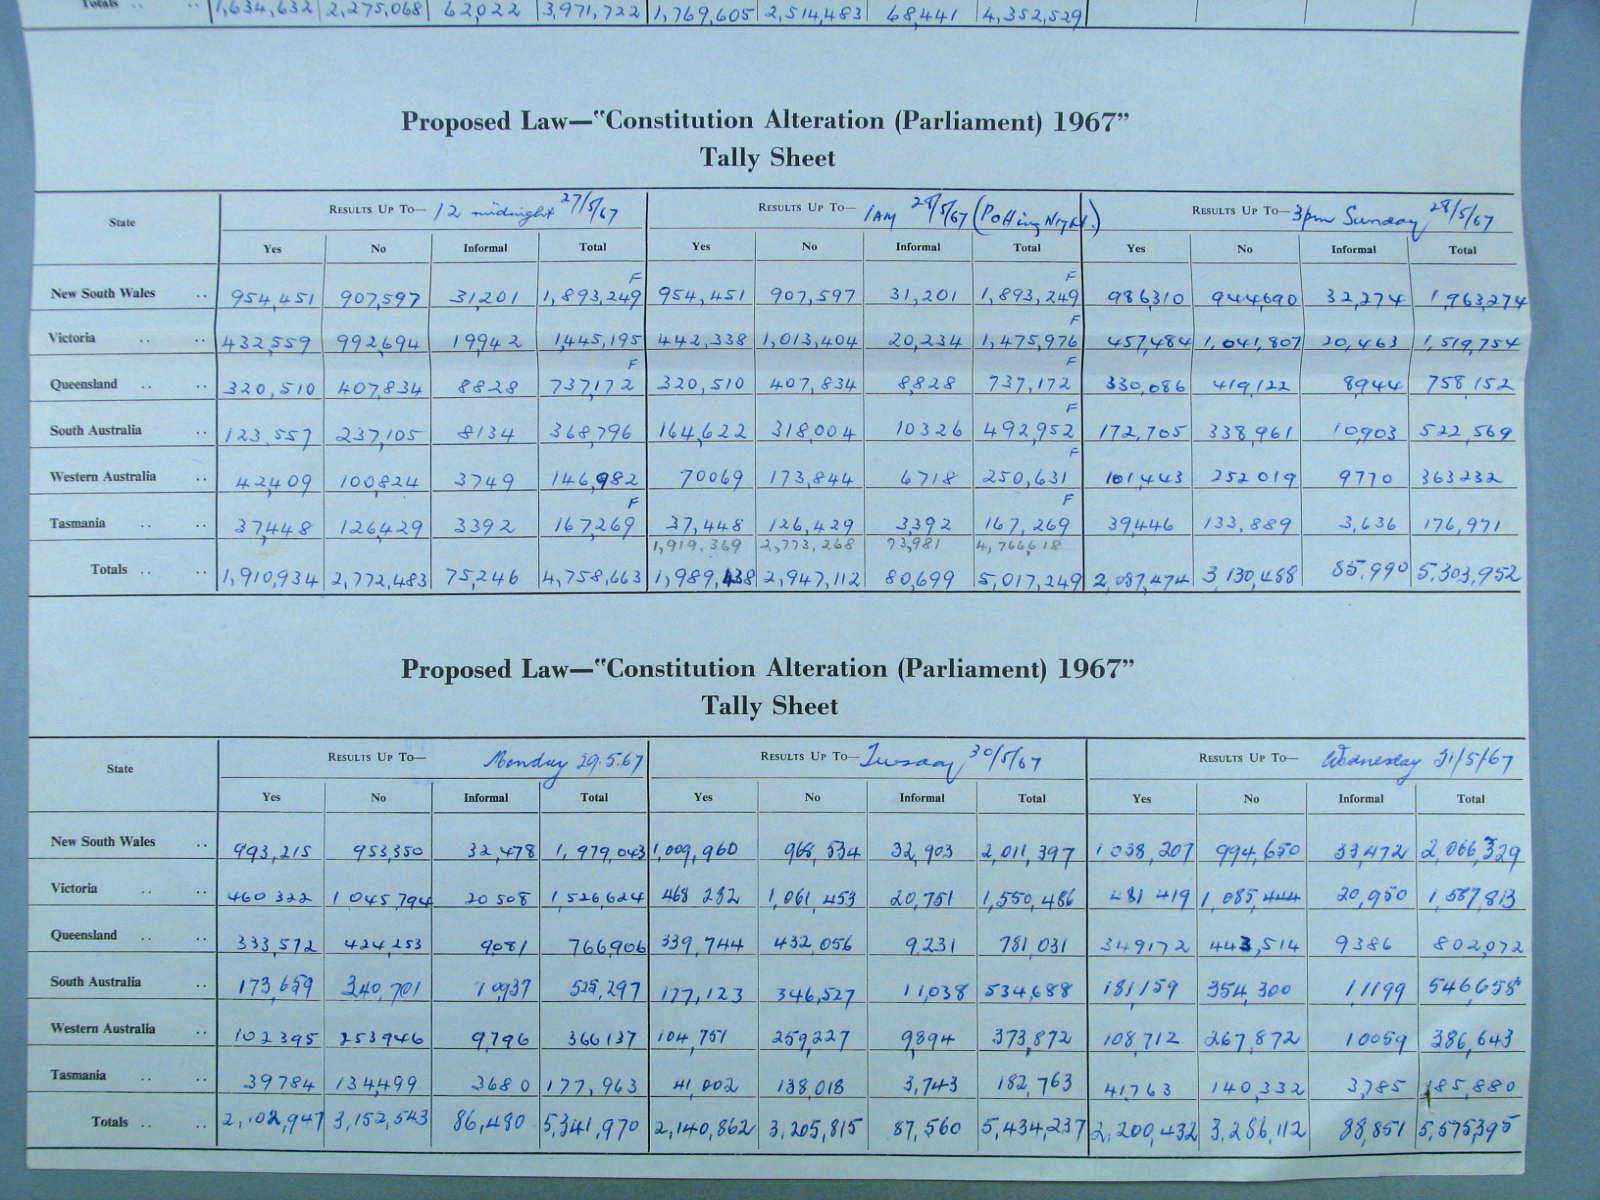 Totals .. .. 1,634,632 2,275,068 62,022 3,971,722 1,769,605 2,514,483 68,441 4,352,529
Proposed Law—"Constitution Alteration (Parliament) 1967"
Tally Sheet
State Results Up To— 12 midnight 27/5/67 Results Up To— 1AM 28/5/67 (Polling Night.) Results Up To— 3pm Sunday 28/5/67
Yes No Informal Total Yes No Informal Total Yes No Informal Total
F F
New South Wales .. 954,451 907,597 31,201 1,893,249 954,451 907,597 31,201 1,893,249 986310 944690 32,274 1,963,274
F
Victoria .. .. 432,559 992,694 19942 1,445,195 442,338 1,013,404 20,234 1,475,976 457,484 1,041,807 20,463 1,519,754
F F
Queensland .. .. 320,510 407,834 8828 737,172 320,510 407,834 8,828 737,172 330,086 419,122 8944 758,152
F
South Australia .. 123,557 237,105 8134 368,796 164,622 318,004 10326 492,952 172,705 338,961 10,903 522,569
F
Western Australia .. 42,409 100,824 3749 146,982 70069 173,844 6718 250,631 101,443 252019 9770 363232
F F
Tasmania .. .. 37,448 126,429 3392 167,269 37,448 126,429 3,392 167,269 39446 133,889 3,636 176,971
1,919,369 2,773,268 73,981 4,766,618
Totals .. .. 1,910,934 2,772,483 75,246 4,758,663 1,989,438 2,947,112 80,699 5,017,249 2,087,474 3,130,488 85,990 5,303,952
Proposed Law—"Constitution Alteration (Parliament) 1967"
Tally Sheet
State Results Up To— Monday 29.5.67 Results Up To— Tuesday 30/5/67 Results Up To— Wednesday 31/5/67
Yes No Informal Total Yes No Informal Total Yes No Informal Total
New South Wales .. 993,215 953,350 32,478 1,979,043 1,009,960 968,534 32,903 2,011,397 1038,207 994,650 33,472 2,066,329
Victoria .. .. 460322 1045,794 20508 1,526,624 468 282 1,061,453 20,751 1,550,486 481 419 1,085,444 20,950 1,587,813
Queensland .. .. 333,572 424,253 9081 766,906 339,744 432,056 9,231 781,031 349172 443,514 9386 802,072
South Australia .. 173,659 340,701 10937 525,297 177,123 346,527 11,038 534,688 181159 354,300 11199 546,658
Western Australia .. 102395 253946 9,796 366137 104,751 259,227 9,894 373,872 108,712 267,872 10059 386,643
Tasmania .. .. 39784 134499 3680 177,963 41,002 138,018 3,743 182,763 41,763 140,332 3,785 185,880
Totals .. .. 2,102,947 3,152,543 86,480 5,341,970 2,140,862 3,205,815 87,560 5,434,237 2,200,432 3,286,112 88,851 5,575,395